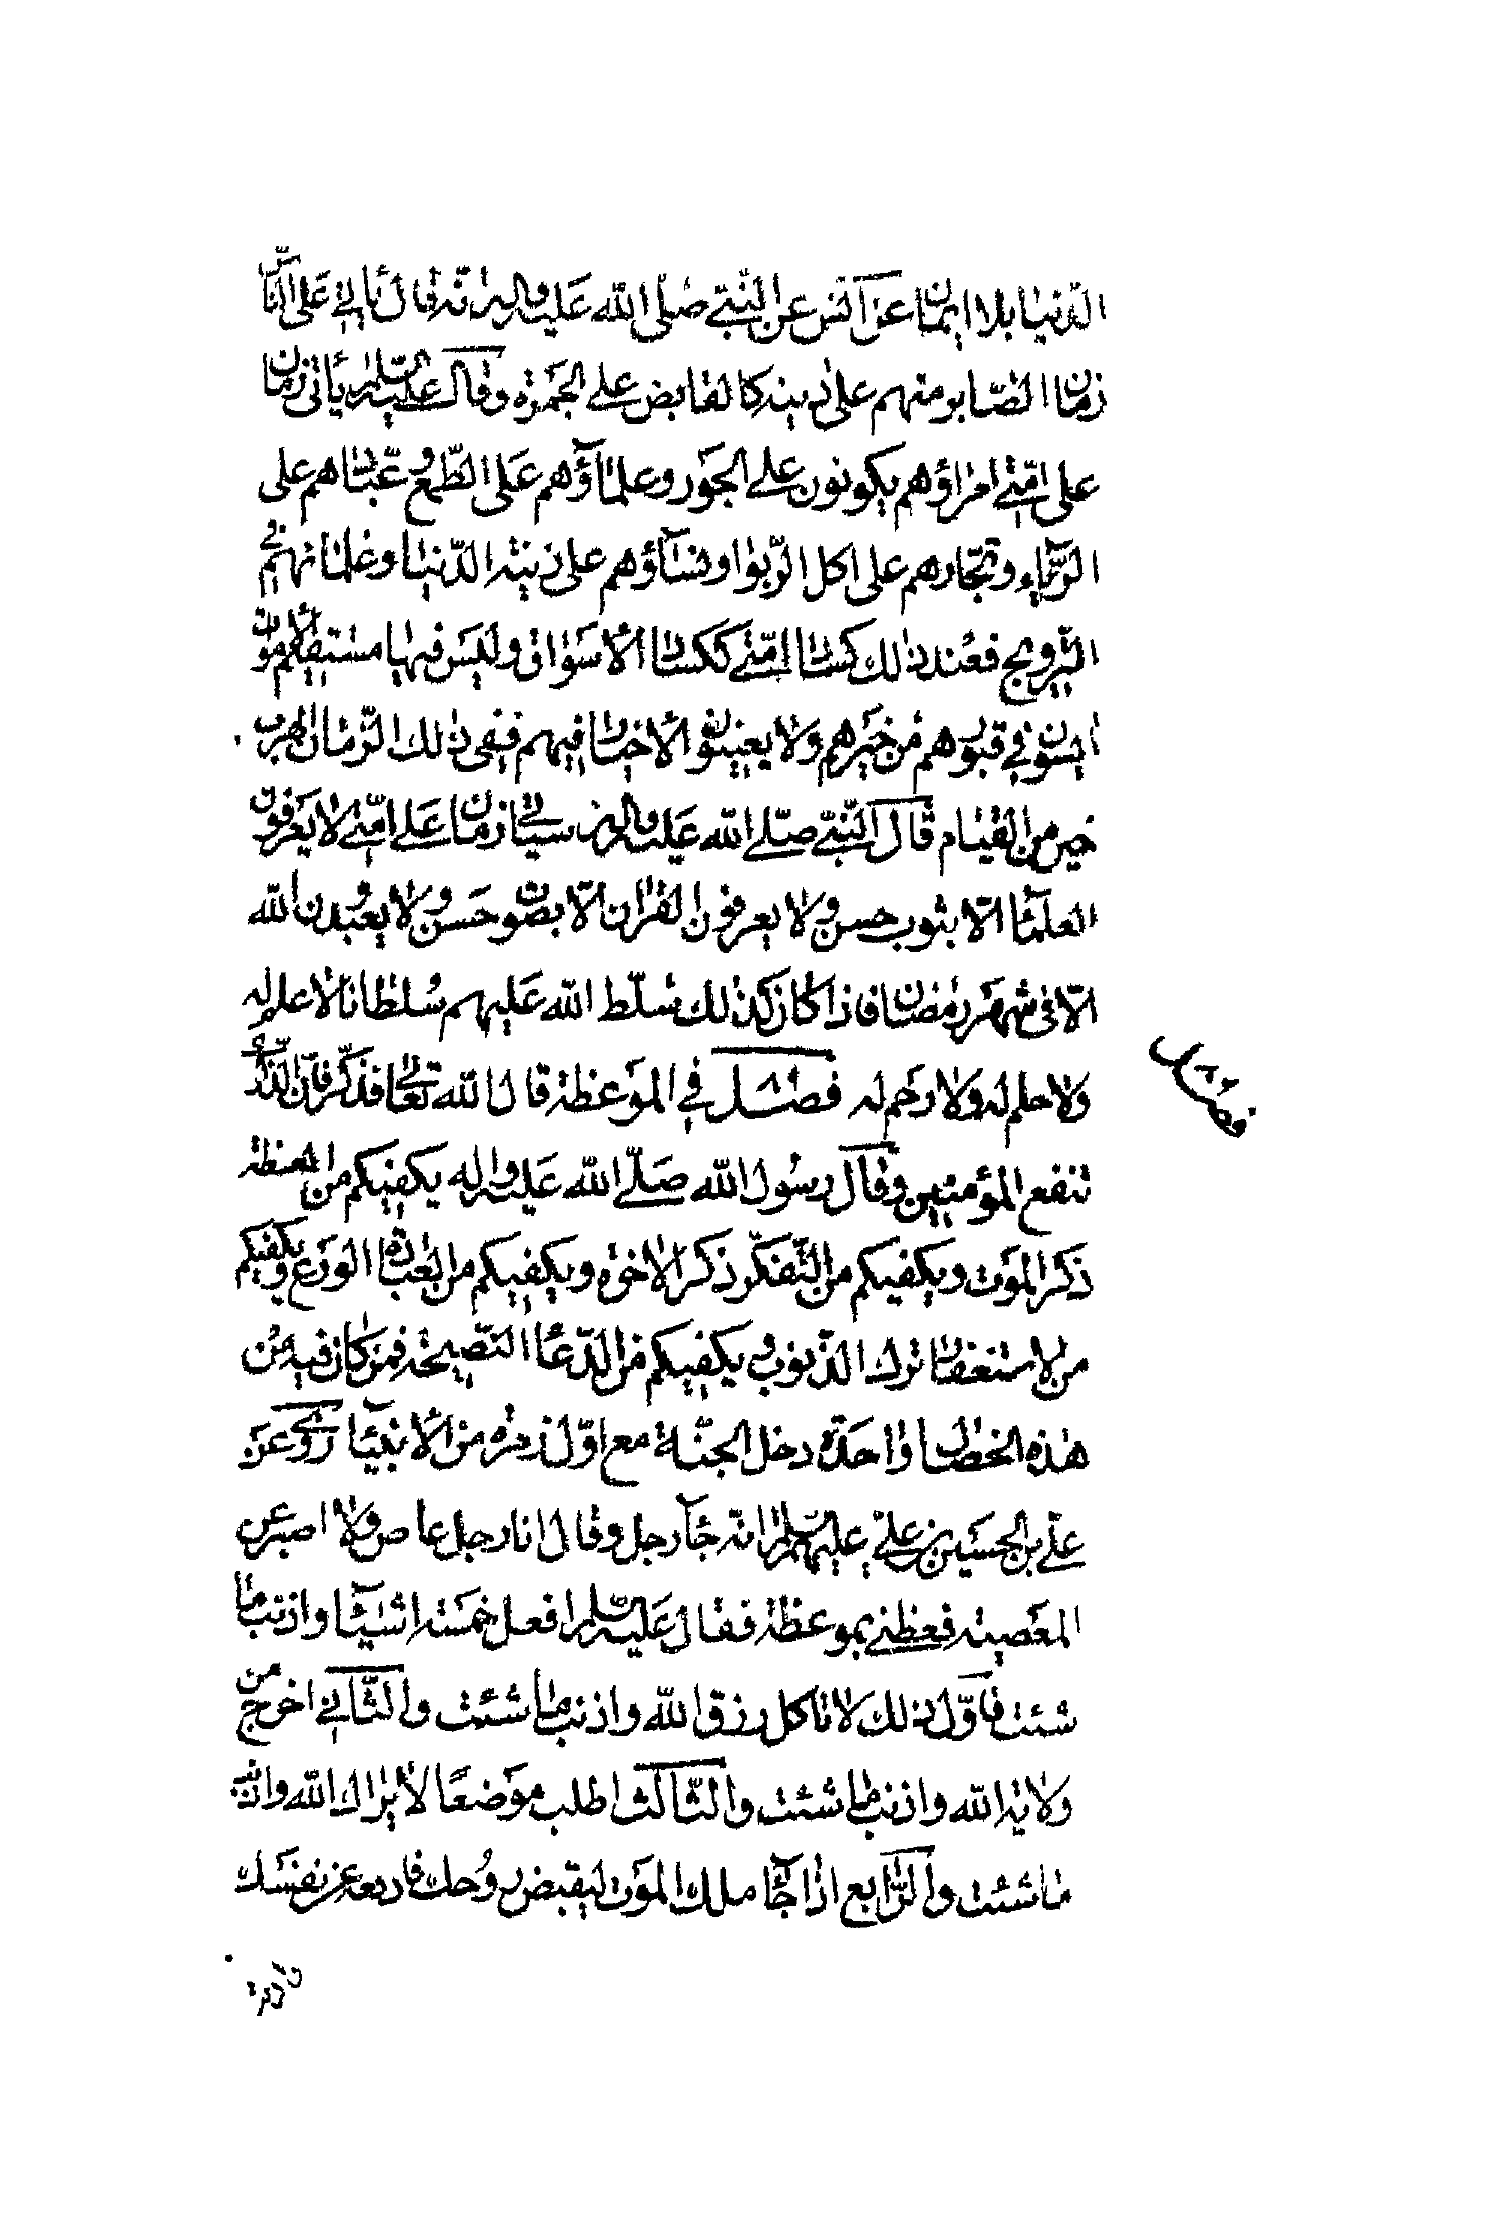 الدنيا بلا ايمان عن انس عن النبي صلى الله عليه واله انه قال ياتي على الناس
زمان الصابر منهم على دينه كالقابض على الجمرة وقال عليه السلم ياتي زمان
على امتي امراؤهم يكونون على الجور وعلماؤهم على الطمع وعبادهم على
الرياء وتجارهم على اكل الربوا ونساؤهم على زينة الدنيا وغلمانهم في
التزويج فعند ذلك كساد امتي ككساد الاسواق وليس فيها مستقيم امواتهم
ايسون في قبورهم من خيرهم ولا يعينون الاخيار فيهم ففي ذلك الزمان الهرب
خير من القيام قال النبي صلى الله عليه واله سياتي زمان على امتي لا يعرفون
العلماء الا بثوب حسن ولا يعرفون القران الا بصوت حسن ولا يعبدون الله
الا في شهر رمضان فاذا كان كذلك سلط الله عليهم سلطانا لا علم له
ولا حلم له ولا رحم له فصل في الموعظة قال الله تعالى فذكر فان الذكرى
فصل
تنفع المؤمنين وقال رسول الله صلى الله عليه واله يكفيكم من العظة
ذكر الموت ويكفيكم من التفكر ذكر الاخرة ويكفيكم من العبادة الورع ويكفيكم
من الاستغفار ترك الذنوب ويكفيكم من الدعاء النصيحة فمن كان فيه من
هذه الخصال واحدة دخل الجنة مع اول زمرة من الانبياء روى عن
علي بن الحسين بن علي عليهم السلم انه جاء رجل وقال انا رجل عاص ولا اصبر عن
المعصية فعظني بموعظة فقال عليه السلم افعل خمسة اشياء واذنب ما
شئت فاول ذلك لا تاكل رزق الله واذنب ما شئت والثاني اخرج من
ولاية الله واذنب ما شئت والثالث اطلب موضعا لا يراك الله واذنب
ما شئت والرابع اذا جاء ملك الموت ليقبض روحك فادفعه عن نفسك